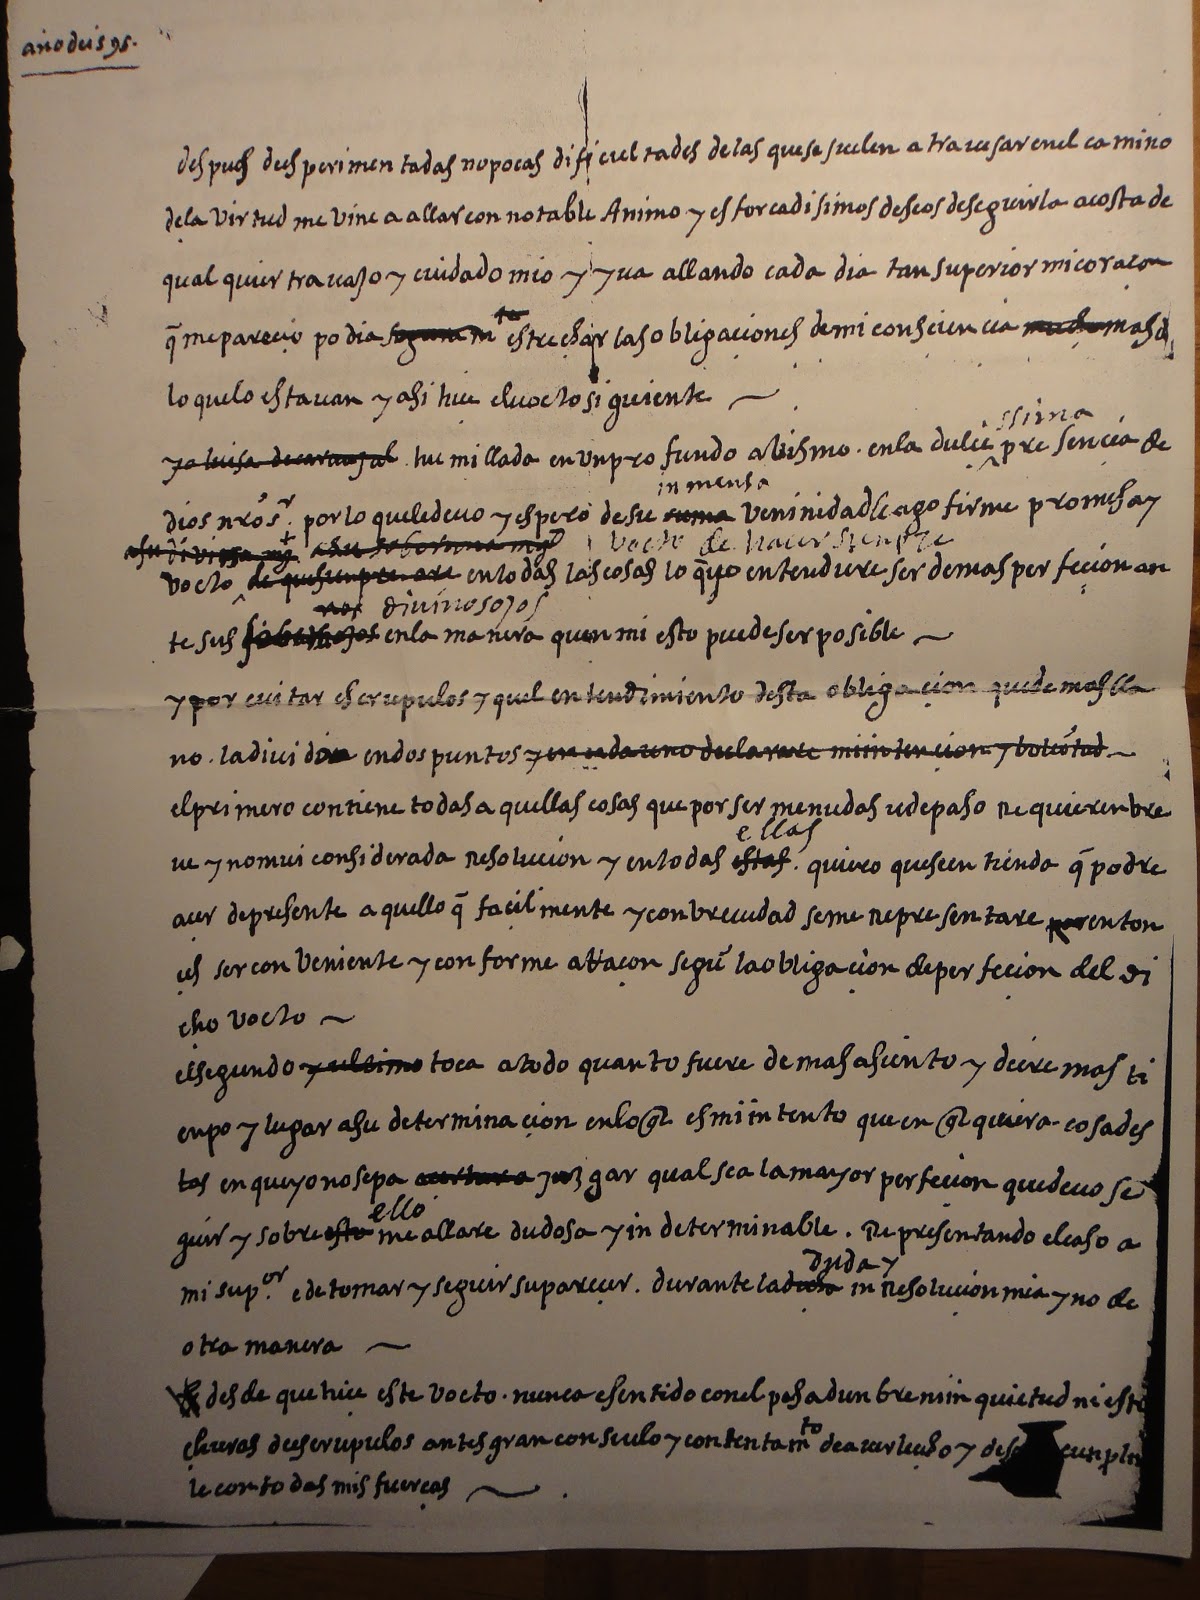 año de 1595.
despues desperimentadas no pocas dificultades de las que se suelen atravesar en el camino
de la virtud me vine a allar con notable Animo y esforçadisimos deseos de seguirla a costa de
qual quier travajo y cuidado mio y yva allando cada dia tan superior mi coraçon
q̃ me pareçio podia estrechar las obligaciones de mi consciencia mucho mas d
lo que lo estavan y asi hice el vocto siguiente
yo luisa de carvajal humillada en un profundo abismo. en la dulcissima presencia de
dios nr̃o sr. por lo que le devo y espero de su suma inmensa veninidad hago firme promesa y
a su divina mgt a su soberana mgd vocto de hacer sienpre
vocto de que sienpre are en todas las cosas lo q̃ yo entendiere ser de mas perfecion an
te sus divinos ojos en la manera que en mi esto puede ser posible
y por evitar escrupulos y quel entendimiento desta obligacion quede mas lla
no. la dividi en dos puntos y en cada uno declarare mi intencion y volũtad
el primero contiene todas aquellas cosas que por ser menudas u de paso Requieren bre
ve y no mui considerada Resolucion y en todas estas ellas. quiero que se entienda q̃ podre
acer de presente aquello q̃ facilmente y con brevedad se me Representare por enton
ces ser conveniente y conforme a Raçon segũ la obligacion de perfecion del di
cho vocto
el segundo y ultimo toca a todo quanto fuere de mas asiento y diere mas ti
enpo y lugar a su determinacion en lo ql es mi intento que en ql quiera cosa des
tas en que yo no sepa juzgar qual sea la mayor perfecion que devo se
guir y sobre esto ello me allare dudosa y indeterminable. Representando el caso a
mi supor. e de tomar y seguir su pareçer. durante la dicha duda y inResolucion mia y no de
otra manera
desde que hice este vocto. nunca e sentido con el pesadunbre ni inquietud ni estre
churas de escrupulos antes gran consuelo y contentamto de averlo hecho y cunplir
le con todas mis fuerças